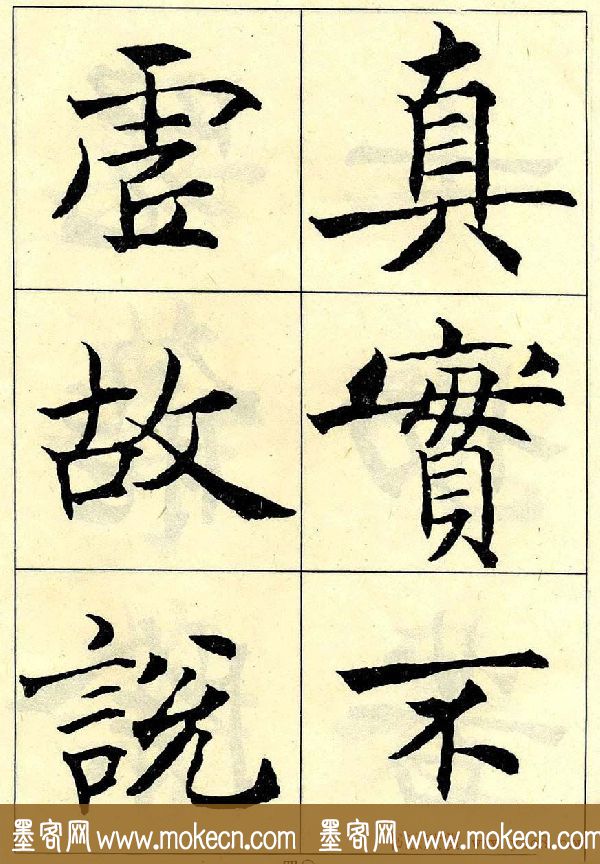 真實不
虛故説
墨客网 www.mokecn.com 墨客网 www.mokecn.com